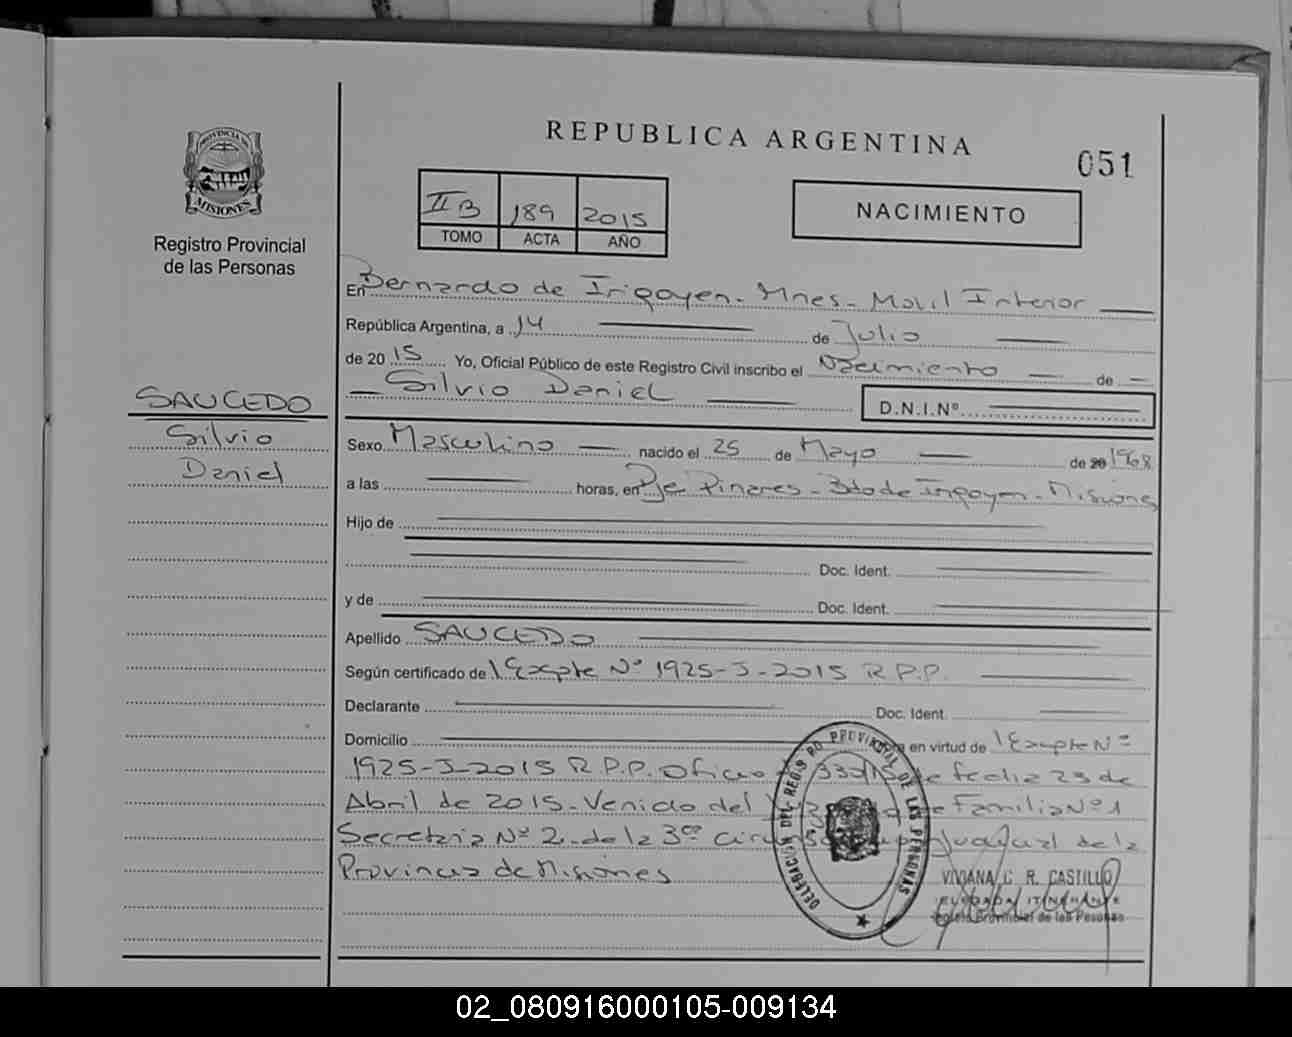 REPUBLICA ARGENTINA
051
PROVINCIA DE
MISIONES
Registro Provincial
de las Personas
II B 189 2015
TOMO ACTA AÑO
NACIMIENTO
En Bernardo de Irigoyen - Mnes - Movil Interior
República Argentina, a 14 de Julio
de 20 15 Yo, Oficial Público de este Registro Civil inscribo el Nacimiento de
Silvio Daniel
D.N.I.Nº
SAUCEDO
Silvio
Daniel
Sexo Masculino nacido el 25 de Mayo de 20 1968
a las horas, en Pje Pinares - Bdo de Irigoyen - Misiones
Hijo de
Doc. Ident.
y de Doc. Ident.
Apellido SAUCEDO
Según certificado de Expte Nº 1925-J-2015 R.P.P.
Declarante Doc. Ident.
Domicilio en virtud de Expte Nº
1925-J-2015 R.P.P. Oficio de fecha 23 de
Abril de 2015 - Venido del de Familia Nº 1
Secretaria Nº 2 - de la 3ra Judicial de la
Provincia de Misiones
DELEGACION DEL REGISTRO PROVINCIAL DE LAS PERSONAS
VIVIANA C. R. CASTILLO
DELEGADA ITINERANTE
Registro Provincial de las Personas
02_080916000105-009134